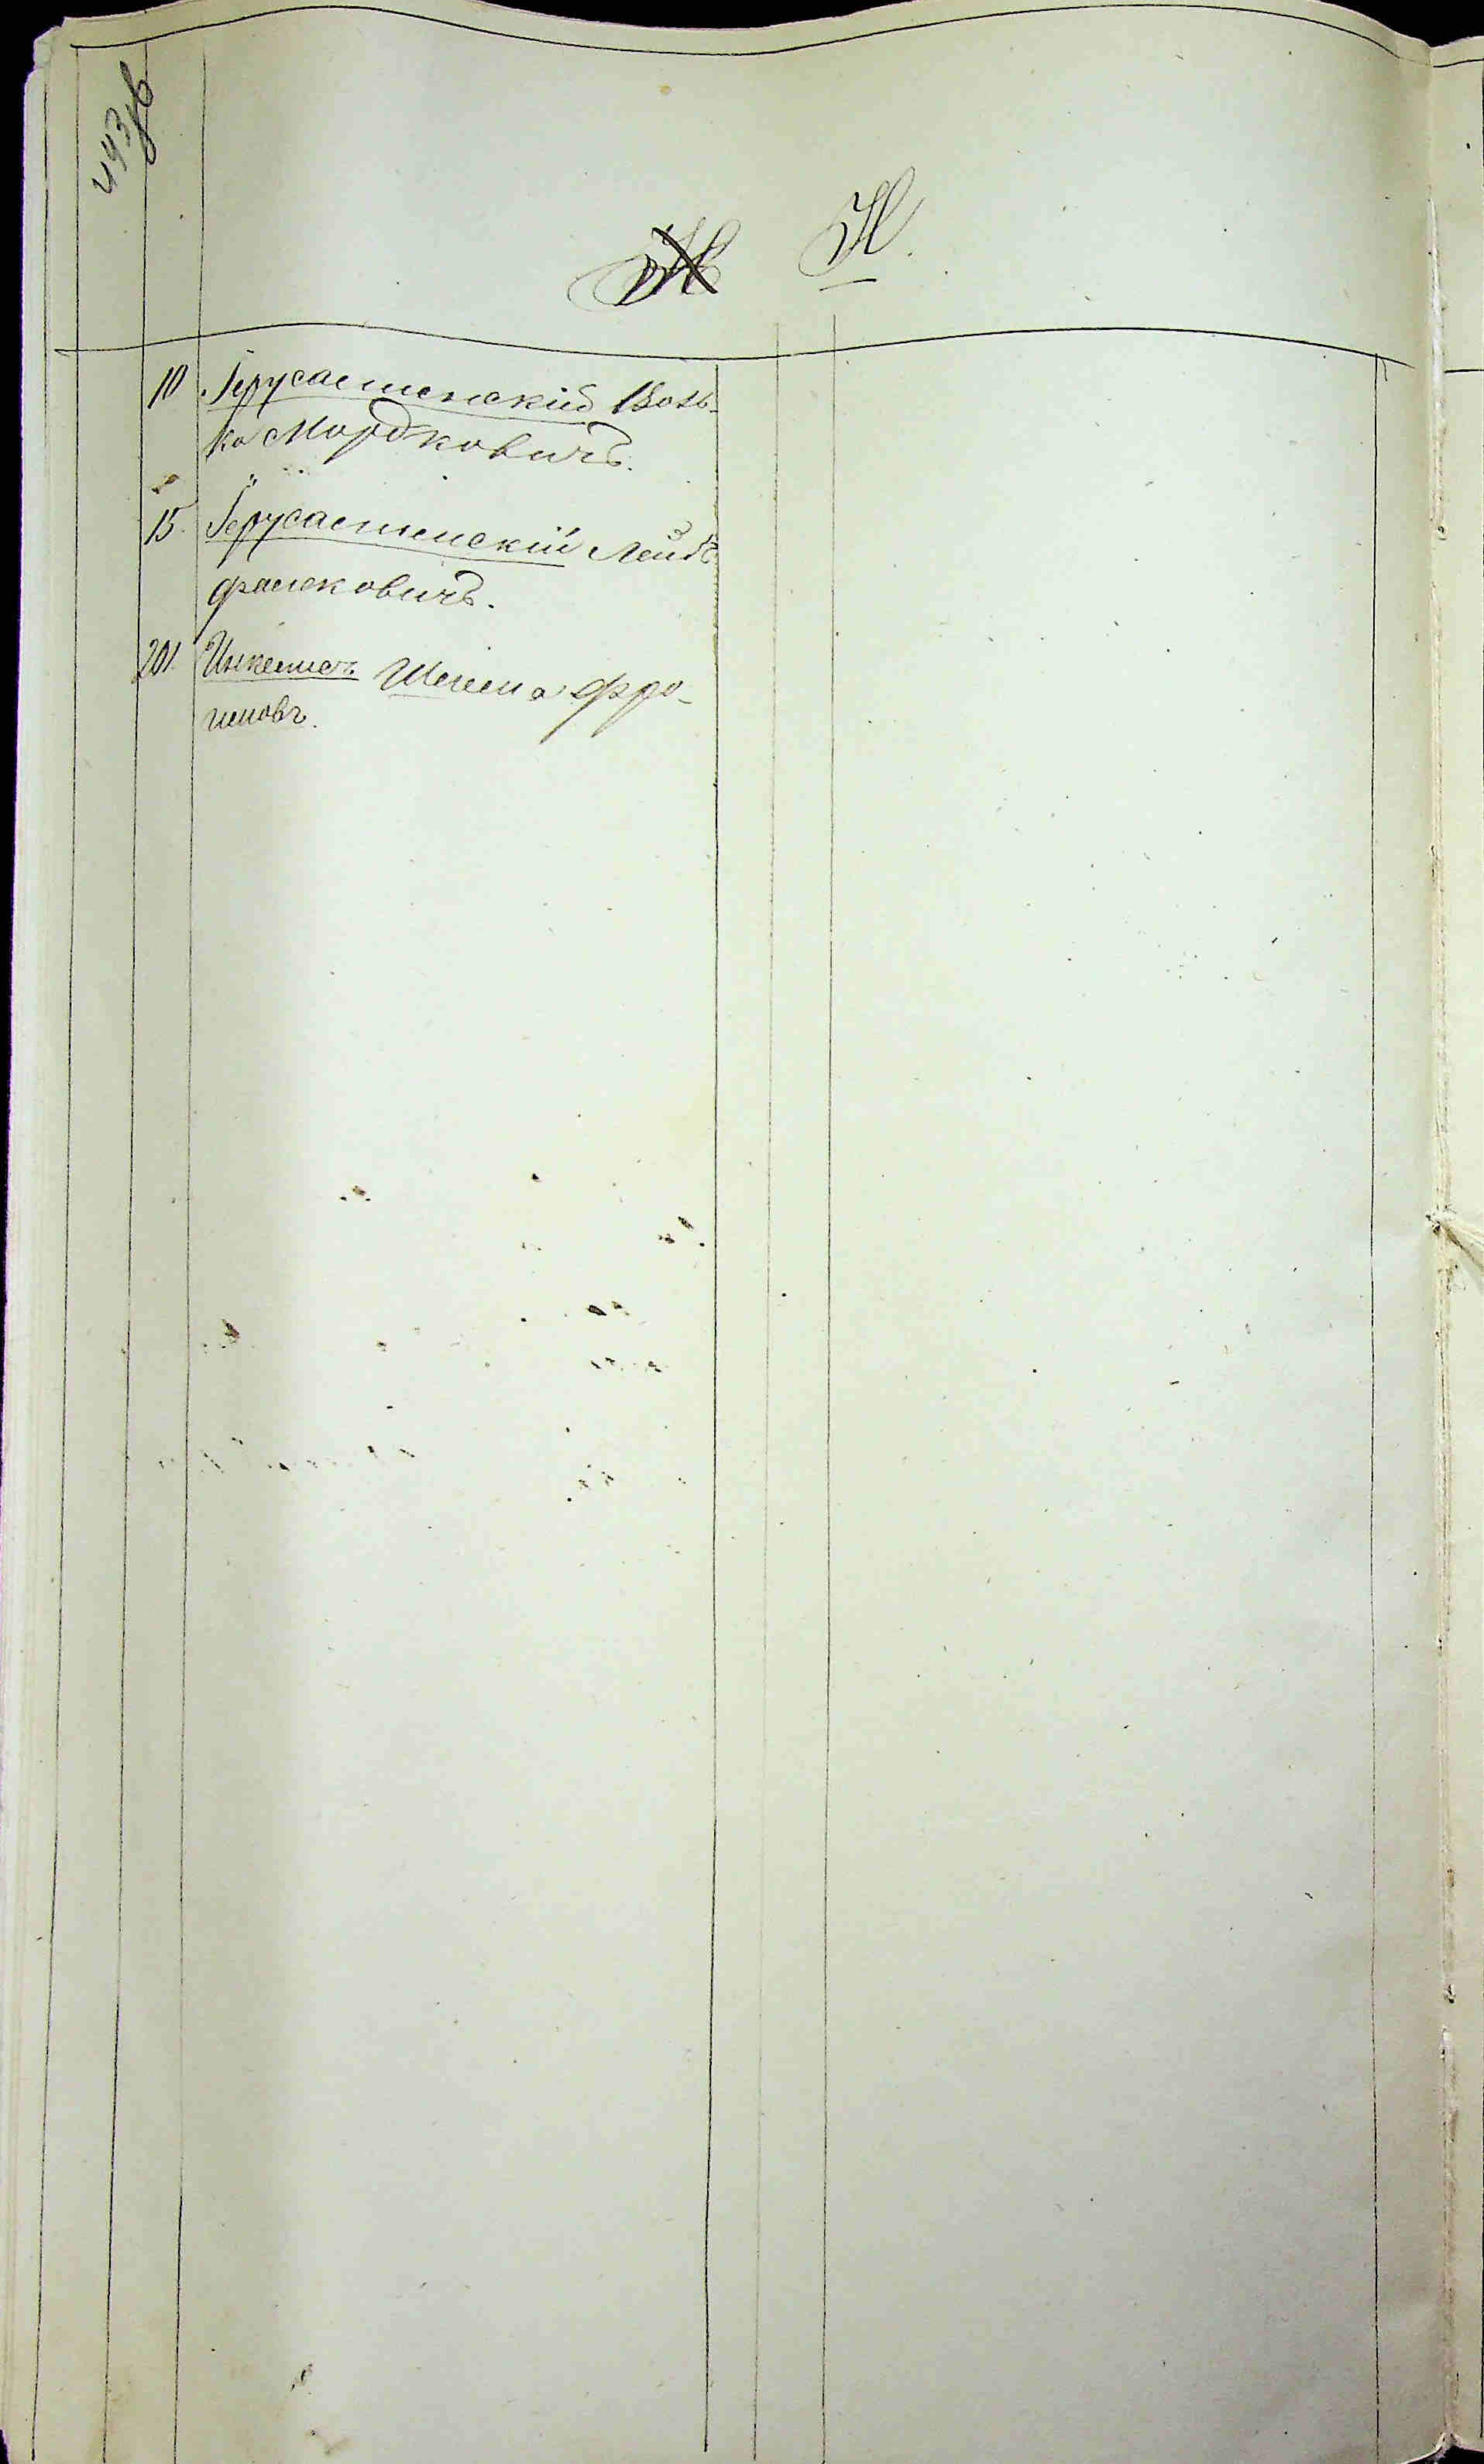 443об
И.
10 Іерусалимскій Воль-
ко Мордковичъ.
15. Іерусалимскій Лейба
Фалековичъ.
201. Инкелисъ Шлема Фро-
имовъ.